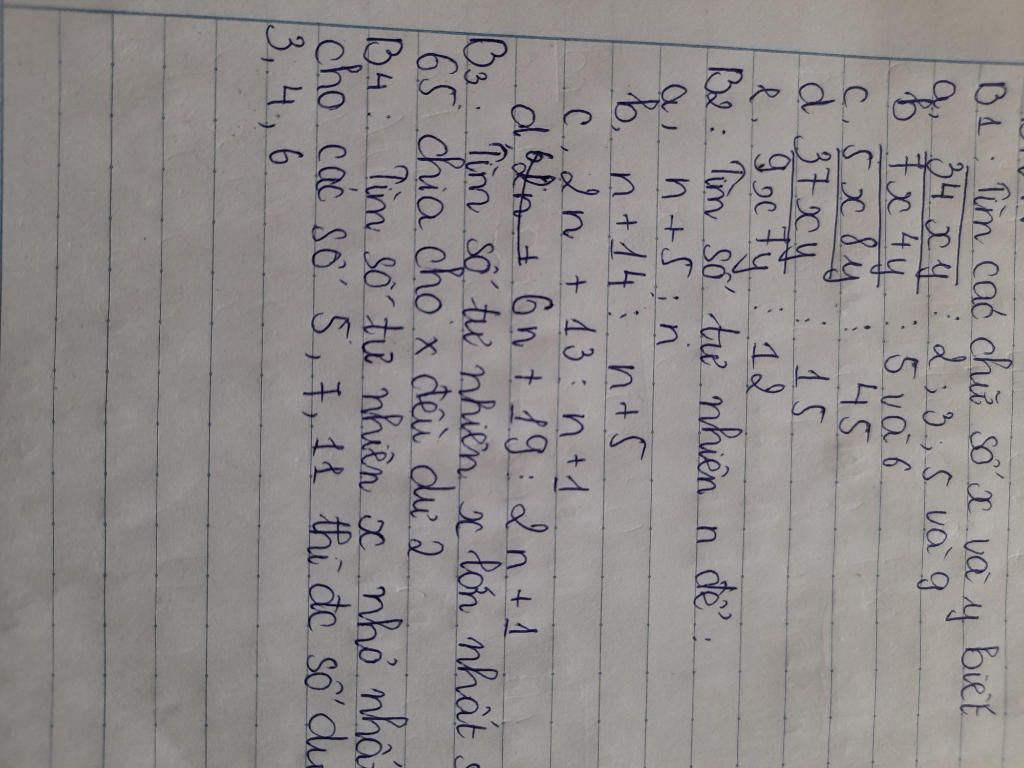 B1: Tìm các chữ số x và y biết
a, 34xy ⋮ 2; 3; 5 và 9
b 7x4y ⋮ 5 và 6
c, 5x8y ⋮ 45
d 37xy ⋮ 15
e, 9x7y ⋮ 12
B2: Tìm số tự nhiên n để:
a, n+5 ⋮ n
b, n+14 ⋮ n+5
c, 2n + 13 ⋮ n+1
d, 6n + 19 ⋮ 2n+1
B3: Tìm số tự nhiên x lớn nhất
65 chia cho x đều dư 2
B4: Tìm số tự nhiên x nhỏ
cho các số 5, 7, 11 thì đc số dư
3, 4, 6